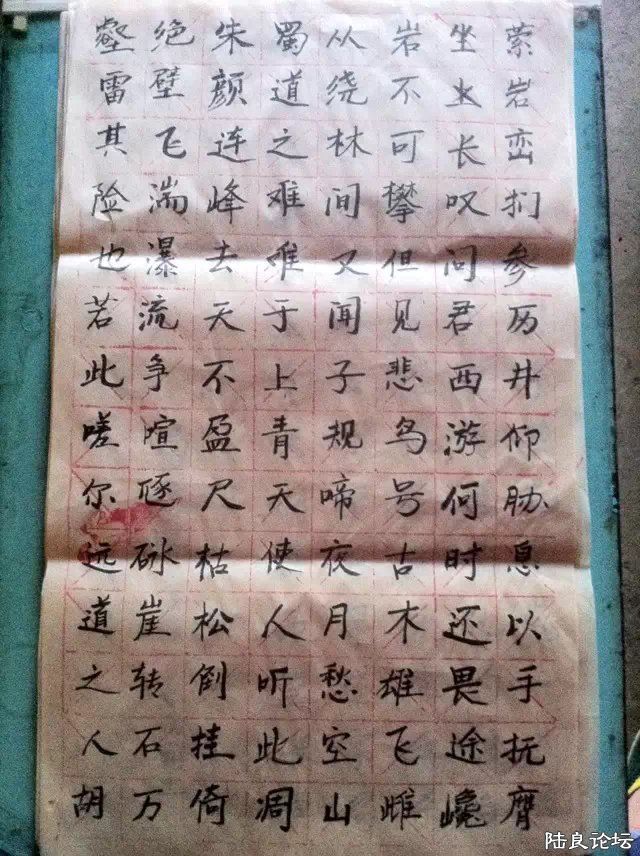 萦岩峦扪参历井仰胁息以手抚膺
坐坐长叹问君西游何时还畏途巉
岩不可攀但见悲鸟号古木雄飞雌
从绕林间又闻子规啼夜月愁空山
蜀道之难难于上青天使人听此凋
朱颜连峰去天不盈尺枯松倒挂倚
绝壁飞湍瀑流争喧豗砯崖转石万
壑雷其险也若此嗟尔远道之人胡
陆良论坛